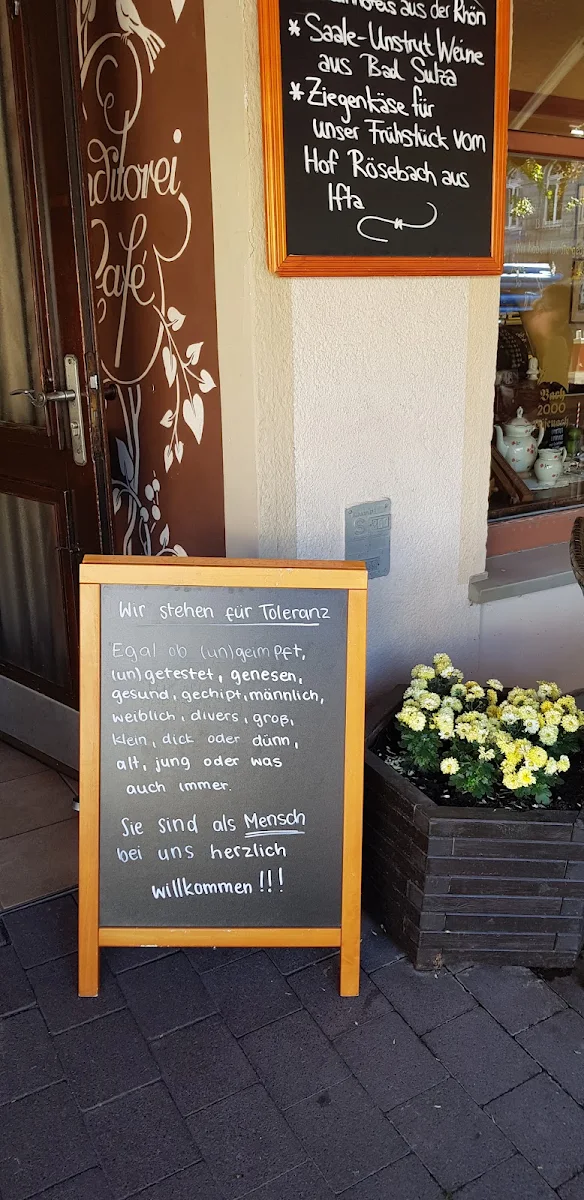 aus der Rhön
* Saale-Unstrut Weine
aus Bad Sulza
* Ziegenkäse für
unser Frühstück vom
Hof Rösebach aus
Ifta
ditorei
Café
Bach
2000
Wir stehen für Toleranz
Egal ob (un)geimpft,
(un)getestet, genesen,
gesund, gechipt, männlich,
weiblich, divers, groß,
klein, dick oder dünn,
alt, jung oder was
auch immer.
Sie sind als Mensch
bei uns herzlich
willkommen!!!